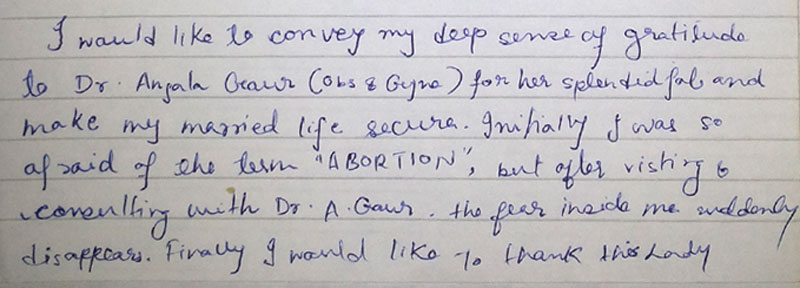 I would like to convey my deep sense of gratitude
to Dr. Anjala Gaur (Obs & Gyne) for her splendid job and
make my married life secure. Initially I was so
afraid of the term "ABORTION", but after visting &
consulting with Dr. A. Gaur. the fear inside me suddenly
disappears. Finally I would like to thank this Lady